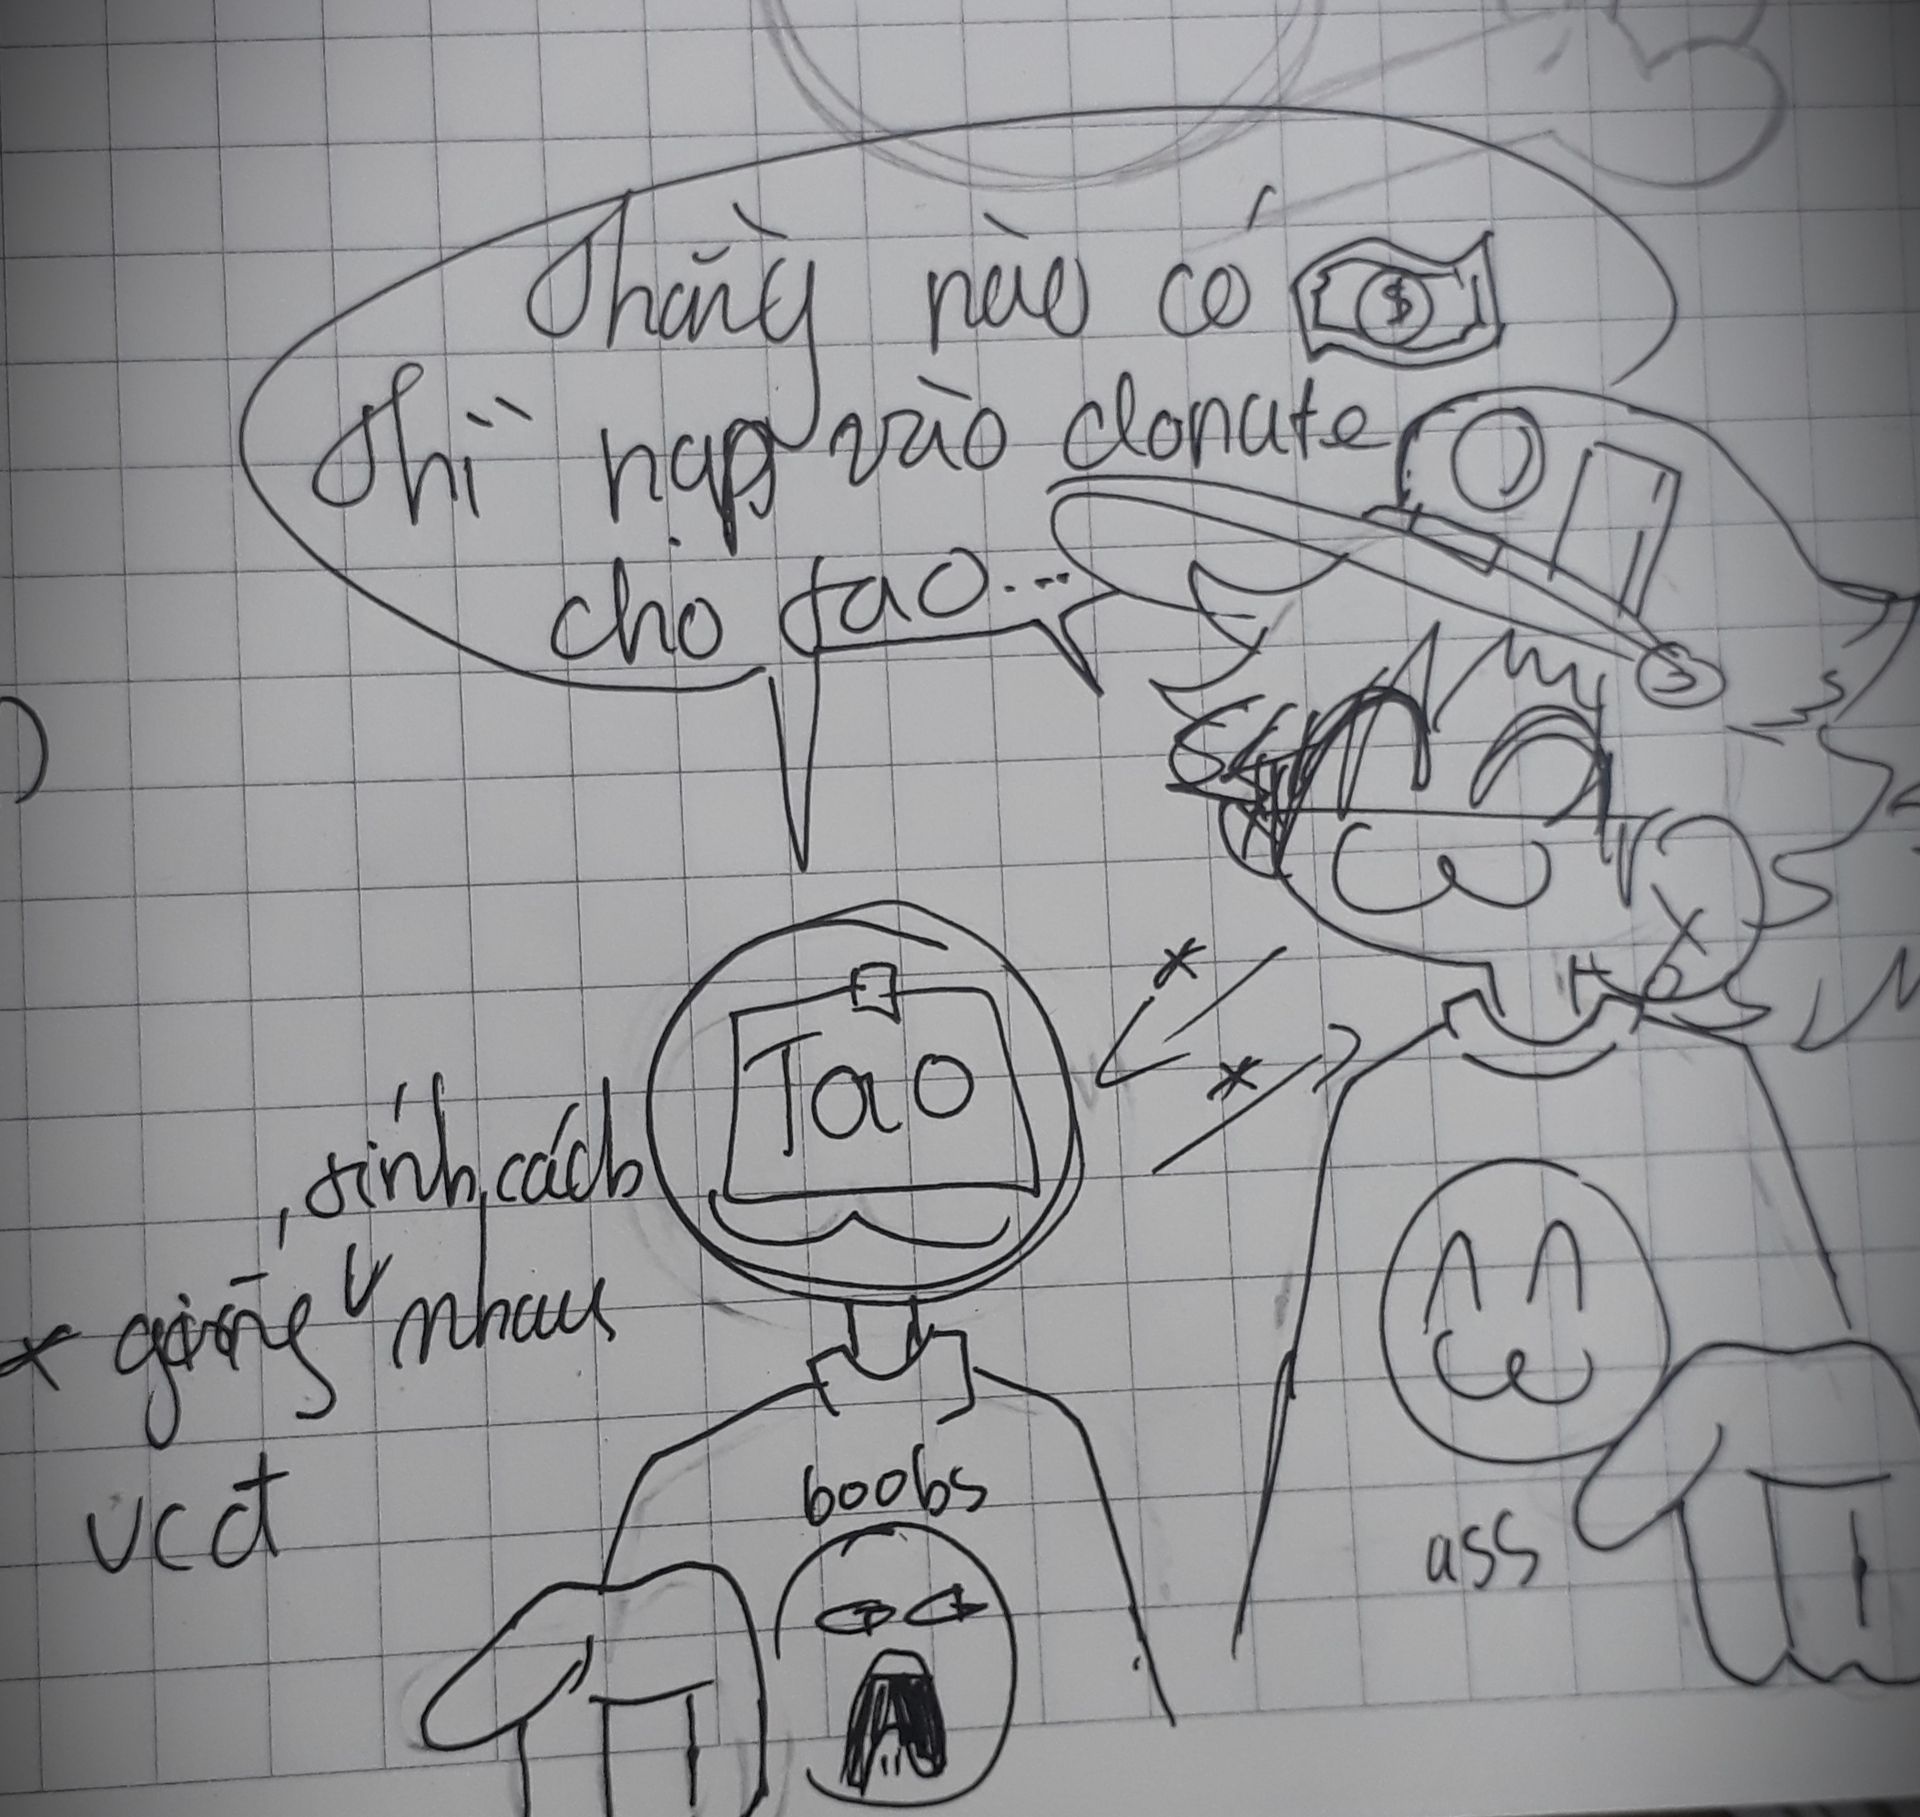 Thằng nào có
Thì nạp vào donate
cho tao...
Tao
, tính cách
* giống v nhau
vcđ
boobs
ass